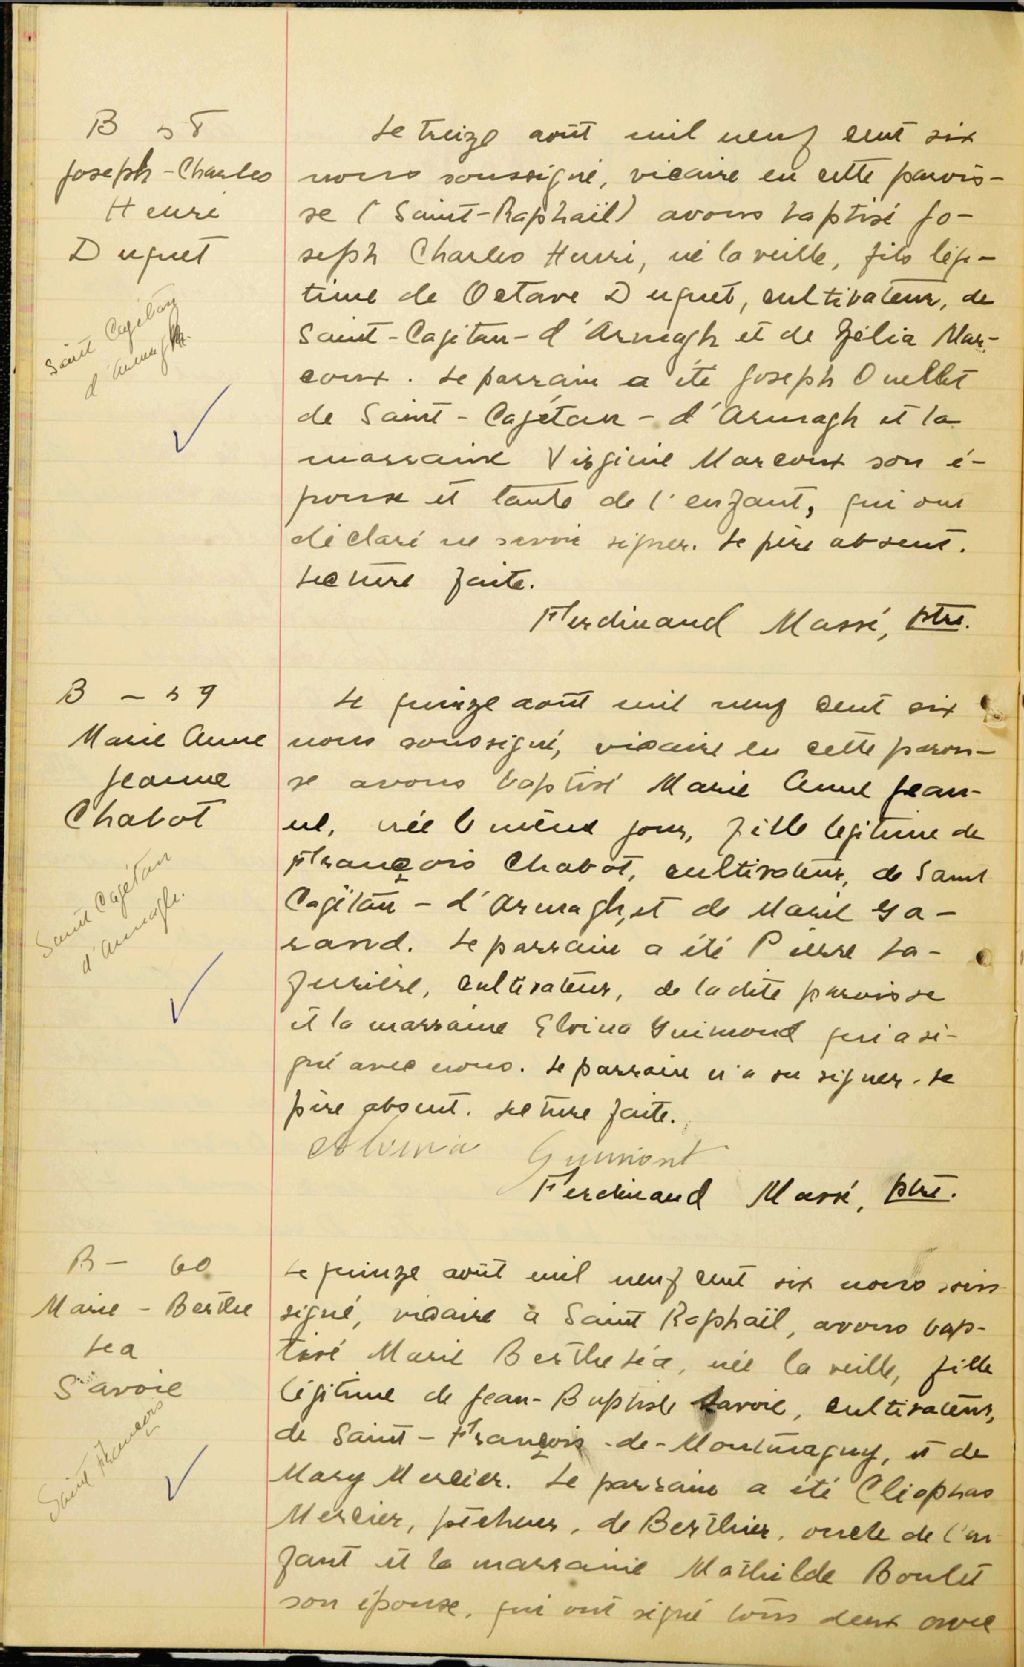 B 58
Joseph-Charles
Henri
Duguet
Saint Cajétan
d'Armagh.
Le treize août mil neuf cent six
nous soussigné, vicaire en cette parois-
se (Saint-Raphaël) avons baptisé Jo-
seph Charles Henri, né la veille, fils légi-
time de Octave Duguet, cultivateur, de
Saint-Cajétan-d'Armagh et de Zélia Mar-
coux. Le parrain a été Joseph Ouellet
de Saint-Cajétan-d'Armagh et la
marraine Virginie Marcoux son é-
pouse et tante de l'enfant, qui ont
déclaré ne savoir signer. Le père absent.
Lecture faite.
Ferdinand Massé, ptre.
B - 59
Marie Anne
Jeanne
Chabot
Saint Cajétan
d'Armagh.
Le quinze août mil neuf cent six
nous soussigné, vicaire en cette parois-
se avons baptisé Marie Anne Jean-
ne, née le même jour, fille légitime de
François Chabot, cultivateur, de Saint
Cajétan-d'Armagh, et de Marie Ga-
rand. Le parrain a été Pierre La-
furière, cultivateur, de ladite paroisse
et la marraine Elvina Guimond qui a si-
gné avec nous. Le parrain n'a su signer. Le
père absent. Lecture faite.
Guimont
Ferdinand Massé, ptre.
B - 60
Marie-Berthe
Léa
Savoie
Saint François
Le quinze août mil neuf cent six nous sous
signé, vicaire à Saint Raphaël, avons bap-
tisé Marie Berthe Léa, née la veille, fille
légitime de Jean-Baptiste Savoie, cultivateur,
de Saint-François-de-Montmagny, et de
Mary Mercier. Le parrain a été Cléophas
Mercier, pêcheur, de Berthier, oncle de l'en
fant et la marraine Mathilde Boulet
son épouse, qui ont signé tous deux avec